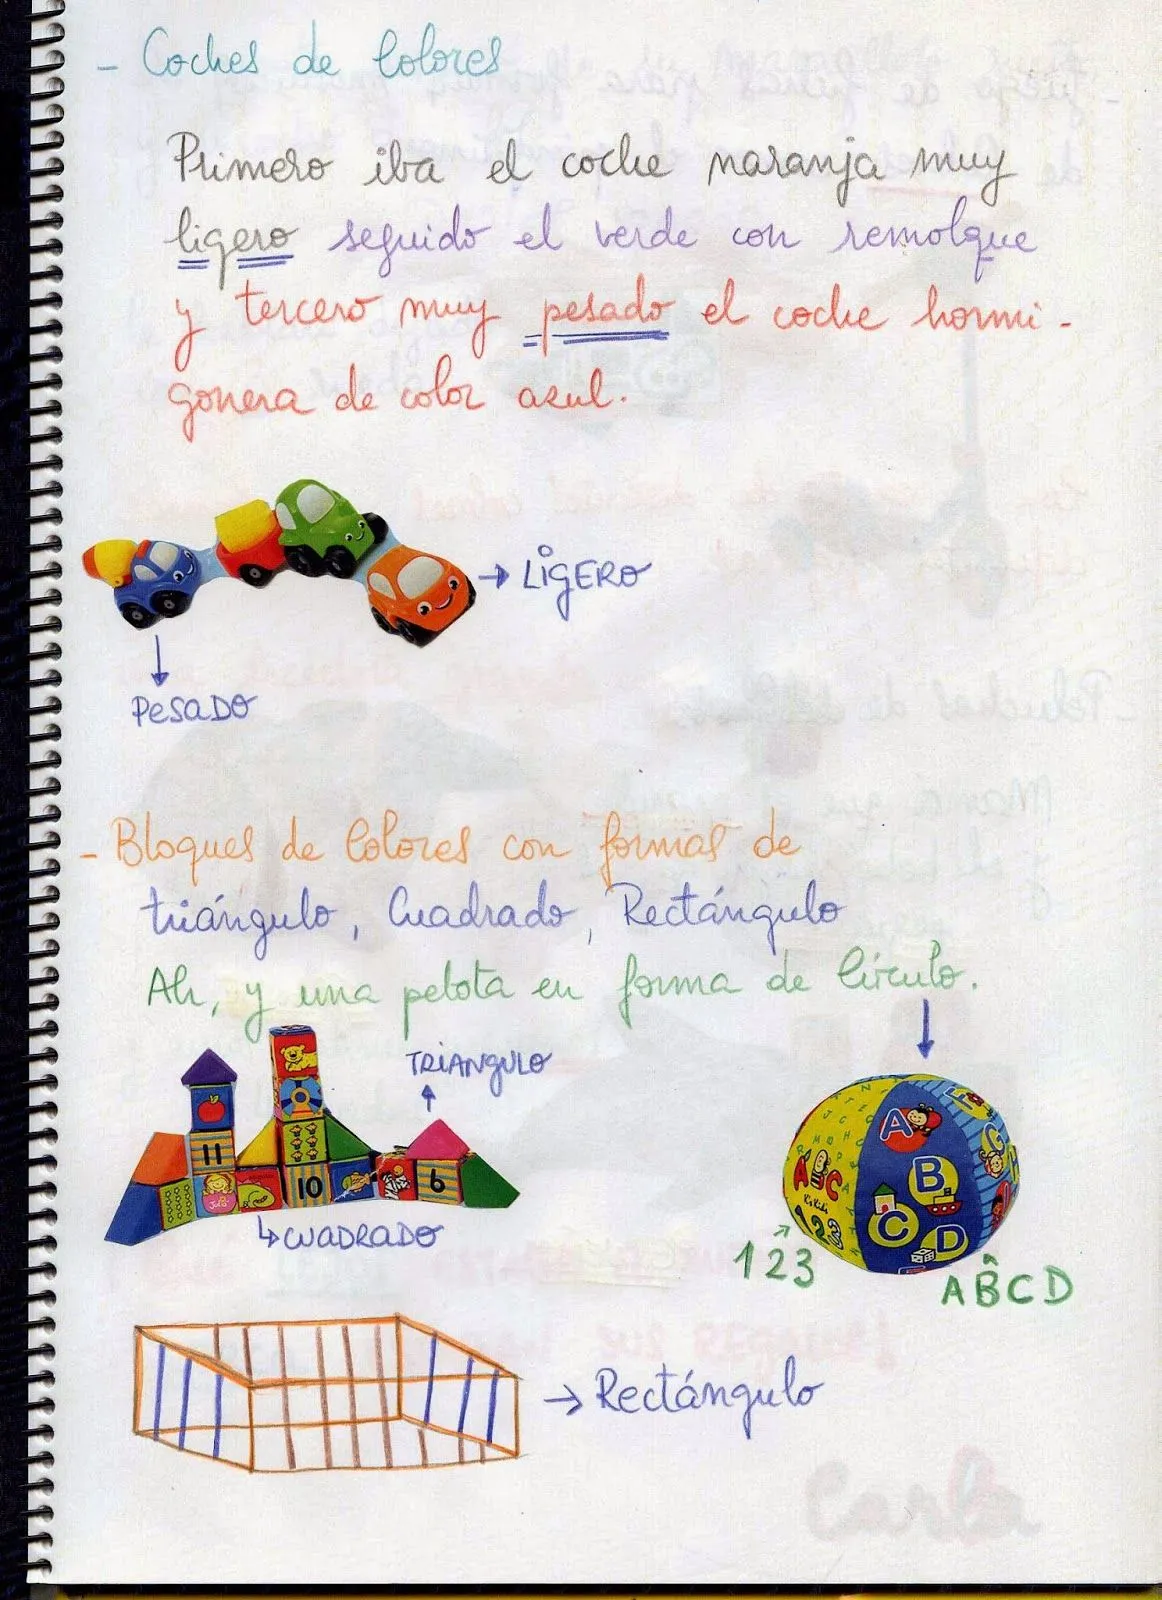 - Coches de Colores
Primero iba el coche naranja muy
ligero seguido el verde con remolque
y tercero muy pesado el coche hormi-
gonera de color azul.
→ LIGERO
PESADO
- Bloques de Colores con formas de
triángulo, Cuadrado, Rectángulo
Ah, y una pelota en forma de Círculo.
TRIANGULO
11
10
6
CUADRADO
A
B
C
D
A C
123
123
ABCD
→ Rectángulo
Carla